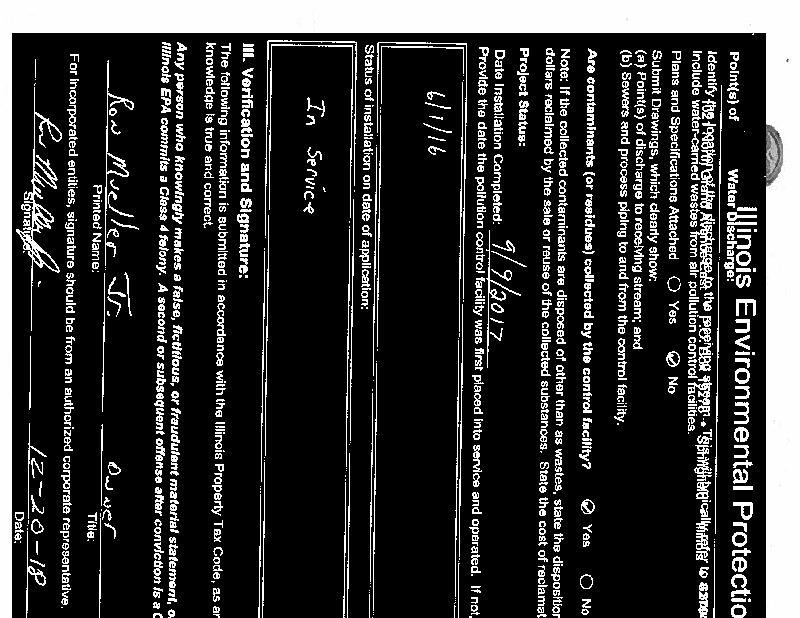 Illinois Environmental Protectio
Point(s) of Water Discharge:
Identify the location of the discharge to the receiving stream. This will typically refer to
Include water-carried wastes from air pollution control facilities.
Plans and Specifications Attached Yes No
Submit Drawings, which clearly show:
(a) Point(s) of discharge to receiving stream; and
(b) Sewers and process piping to and from the control facility.
Are contaminants (or residues) collected by the control facility? Yes No
Note: If the collected contaminants are disposed of other than as wastes, state the disposition
dollars reclaimed by the sale or reuse of the collected substances. State the cost of reclamat
Project Status:
Date Installation Completed: 9/9/2017
Provide the date the pollution control facility was first placed into service and operated. If not,
6/1/16
Status of installation on date of application:
In Service
III. Verification and Signature:
The following information is submitted in accordance with the Illinois Property Tax Code, as an
knowledge is true and correct.
Any person who knowingly makes a false, fictitious, or fraudulent material statement, o
Illinois EPA commits a Class 4 felony. A second or subsequent offense after conviction is a C
Ron Mueller Jr. Owner
Printed Name: Title:
For incorporated entities, signature should be from an authorized corporate representative.
12-20-18
Signature: Date: